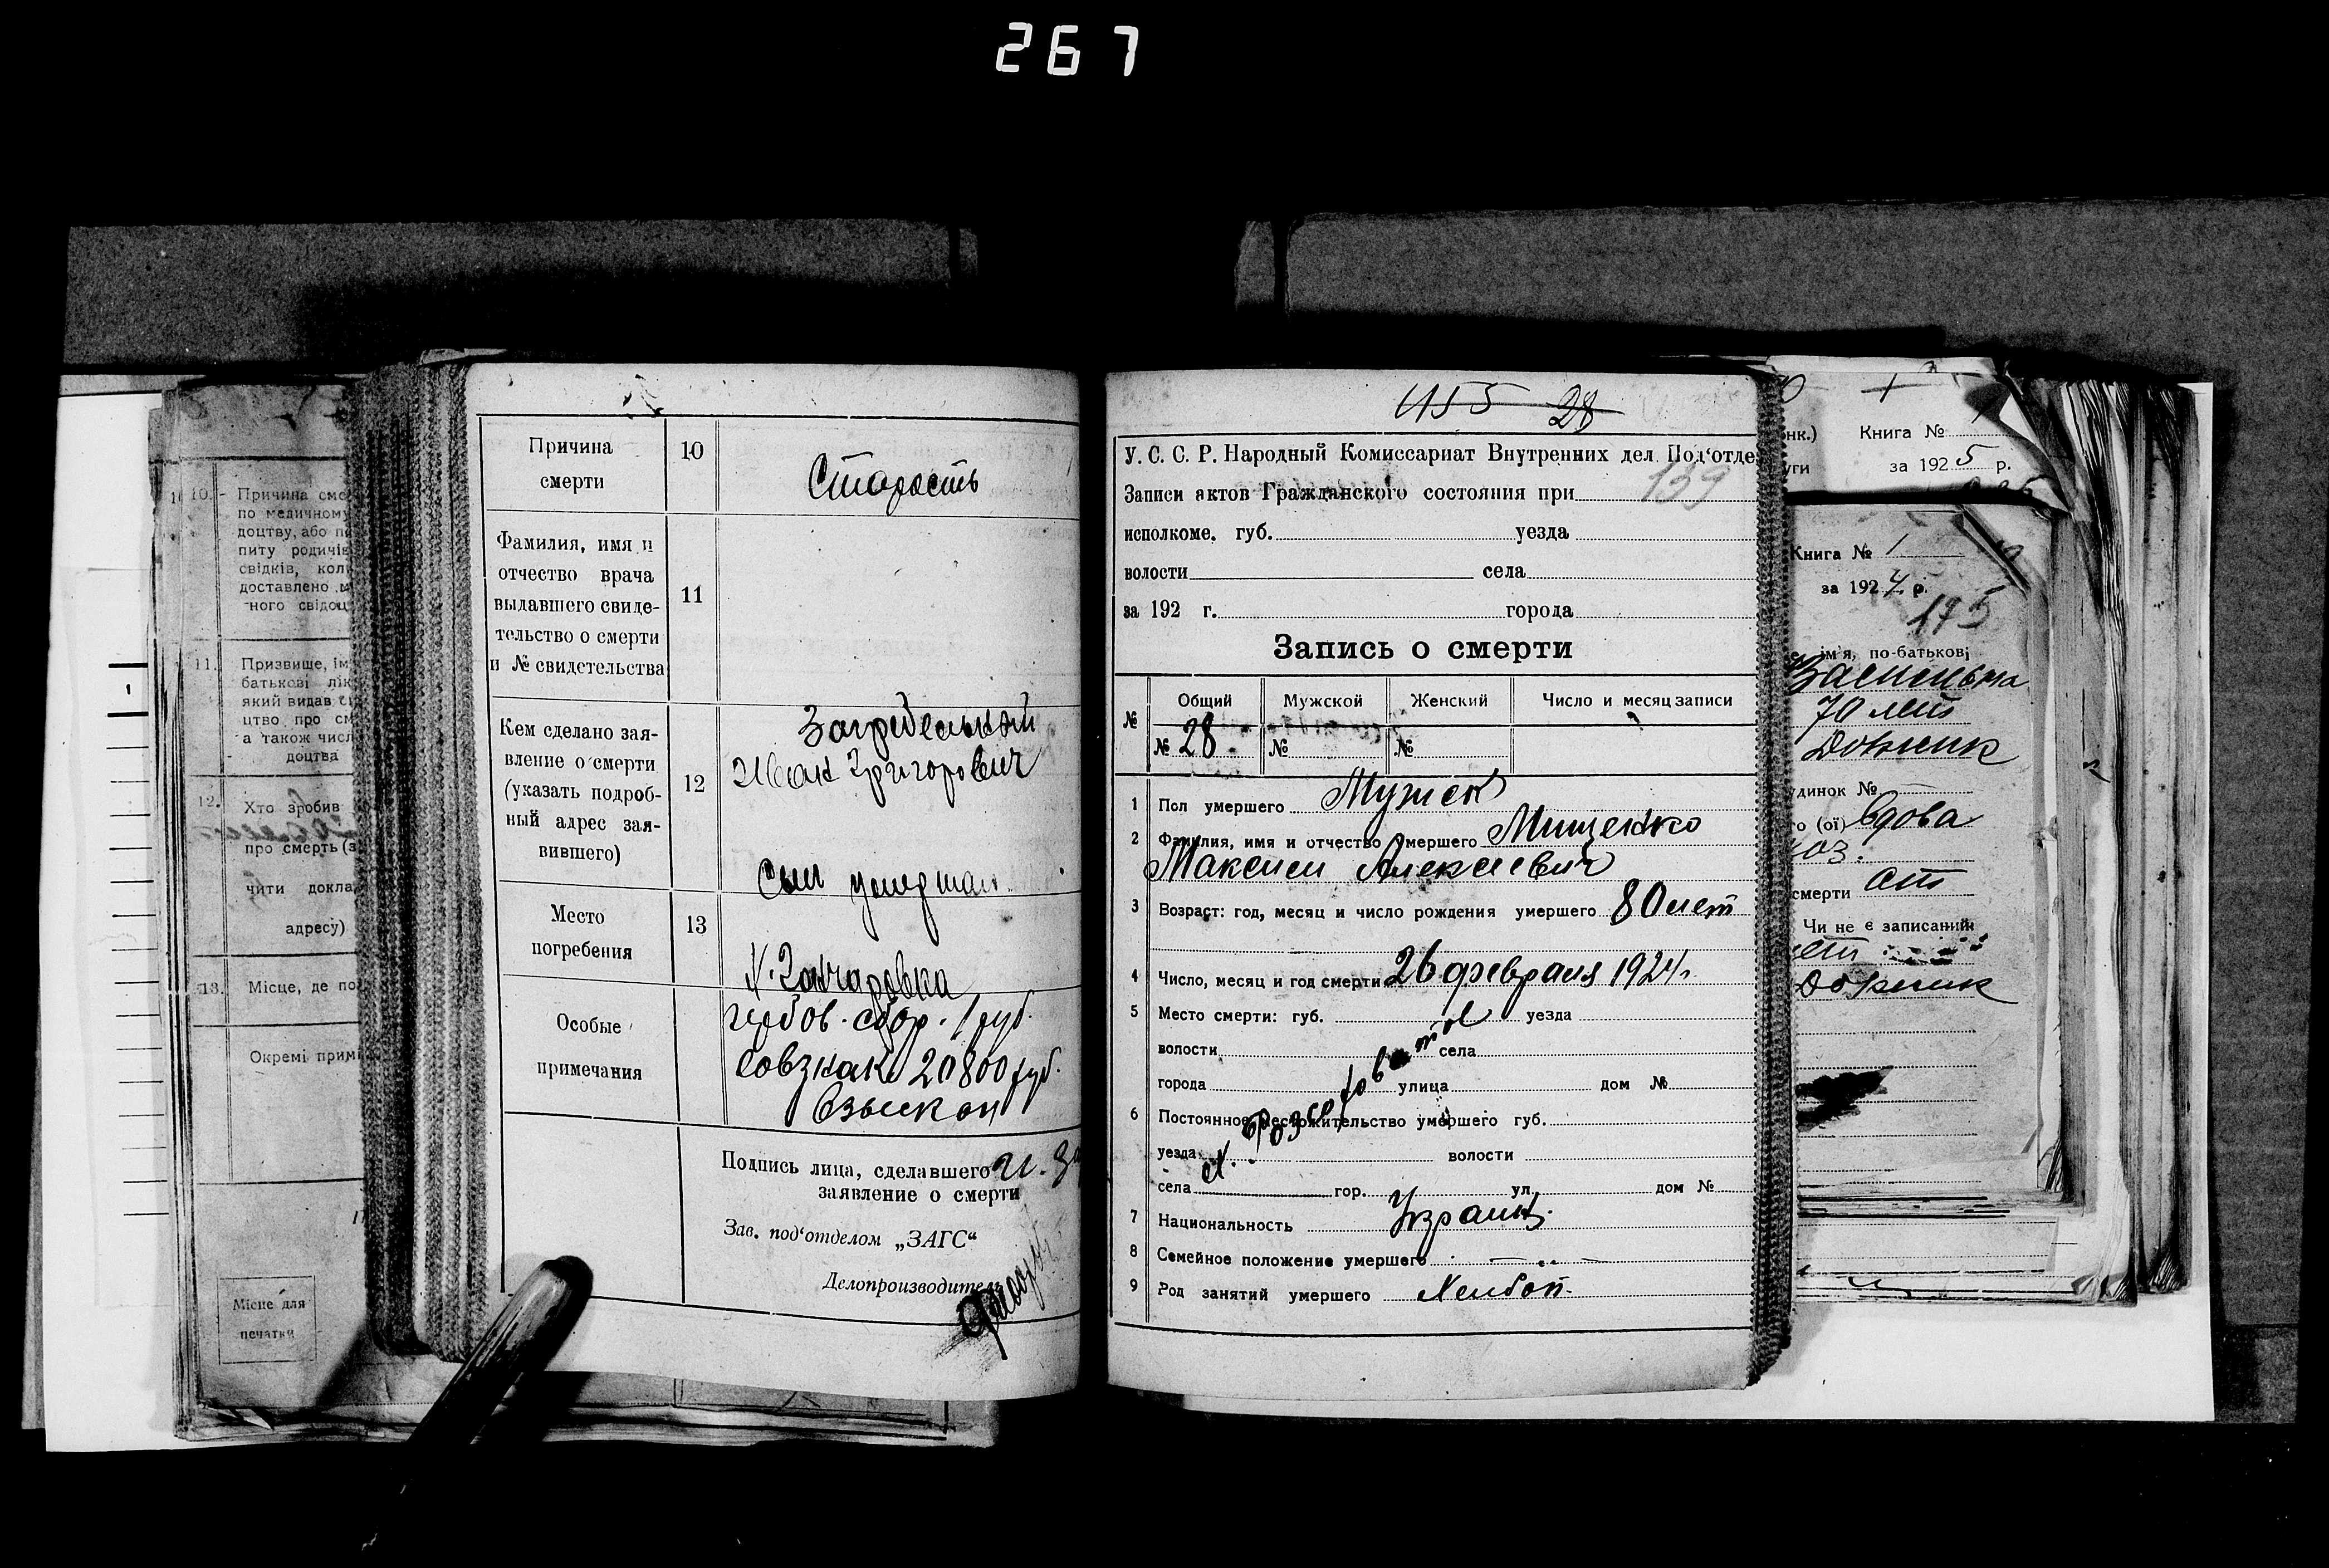 267
10.
Причина сме
по медичному
доцтву, або п
питу родичів
свідків, кол
доставлено м
ного свідоц
11.
Призвище, ім
батькові лік
який видав с
цтво про см
а також числ
доцтва
12.
Хто зробив
про смерть (з
чити докла
адресу)
13.
Місце, де по
Окремі примі
Місце для
печатки
Причина
смерти
10
Старость
Фамилия, имя и
отчество врача
выдавшего свиде-
тельство о смерти
и № свидетельства
11
Кем сделано зая-
вление о смерти
(указать подроб-
ный адрес зая-
вившего)
12
Загребельный
Иван Григорович
Сын
Место
погребения
13
Х. Ганчаровка
Особые
примечания
гербов. сбор. 1 руб.
совзнак. 20800 руб.
Взыскан
Подпись лица, сделавшего И. За
заявление о смерти
Зав. под'отделом „ЗАГС“
Делопроизводитель
455 28
У. С. С. Р. Народный Комиссариат Внутренних дел Под'отде
Записи актов Гражданского состояния при 139
исполкоме, губ. уезда
волости села
за 192 г. города
Запись о смерти
№
Общий Мужской Женский Число и месяц записи
№ 28 № №
1 Пол умершего Мужск
2 Фамилия, имя и отчество умершего Мищенко
Максим Алексеевич
3 Возраст: год, месяц и число рождения умершего 80 лет
4 Число, месяц и год смерти 26 февраля 1924 г.
5 Место смерти: губ. уезда
волости села
города улица дом №
6 Постоянное местожительство умершего губ.
уезда волости
села гор. ул. дом №
7 Национальность Украин.
8 Семейное положение умершего
9 Род занятий умершего Хлебоп.
нк.) Книга №
уги за 1925 р.
Книга № 1
за 1924 р.
175
ім'я, по-батькові
70 лет
удинок №
о (ої) Вдова
смерти
Чи не є записаний